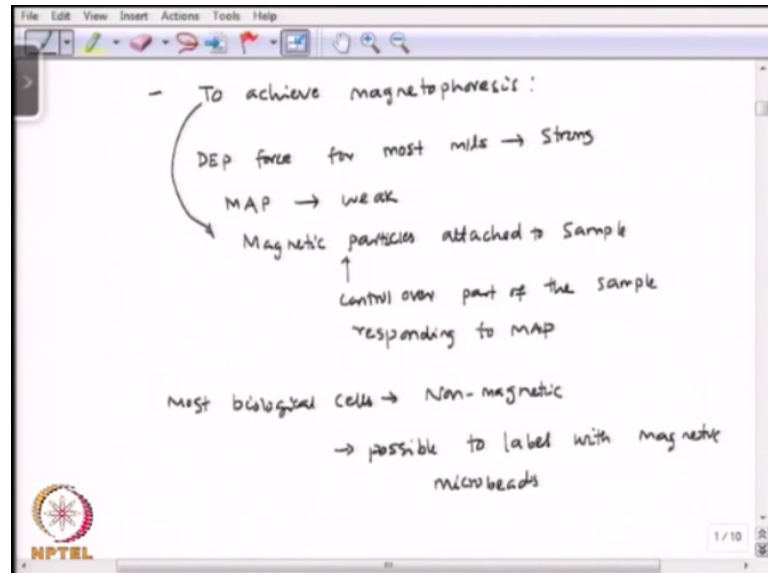 File Edit View Insert Actions Tools Help
- To achieve magnetophoresis :
DEP force for most mtls → Strong
MAP → weak
Magnetic particles attached to Sample
↑
control over part of the sample
responding to MAP
Most biological cells → Non-magnetic
→ possible to label with magnetic
microbeads
NPTEL
1 / 10